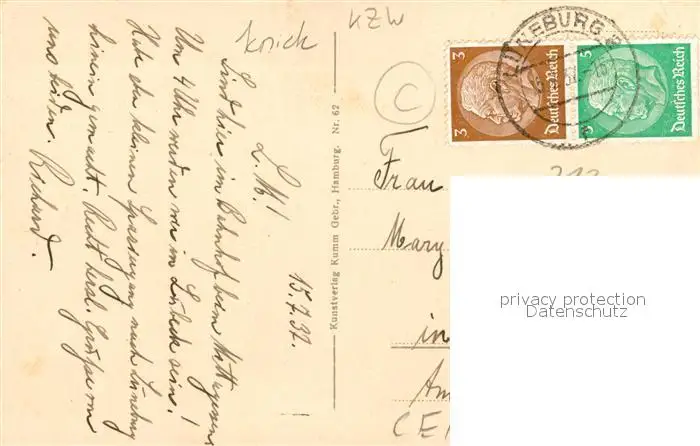 15.7.37.
L. M.!
Sind hier im Bahnhof beim Mittagessen
Um 4 Uhr werden wir in Lübeck sein!
Habe den kleinen Spaziergang nach Lüneburg
hinein gemacht. Recht herzl. Grüße von
uns beiden. Richard.
Knick
KZW
C
Kunstverlag Kumm Gebr., Hamburg. Nr. 62
3
3
Deutsches Reich
5
5
Deutsches Reich
LÜNEBURG
Frau
Mary
in
Am
CE
privacy protection
Datenschutz